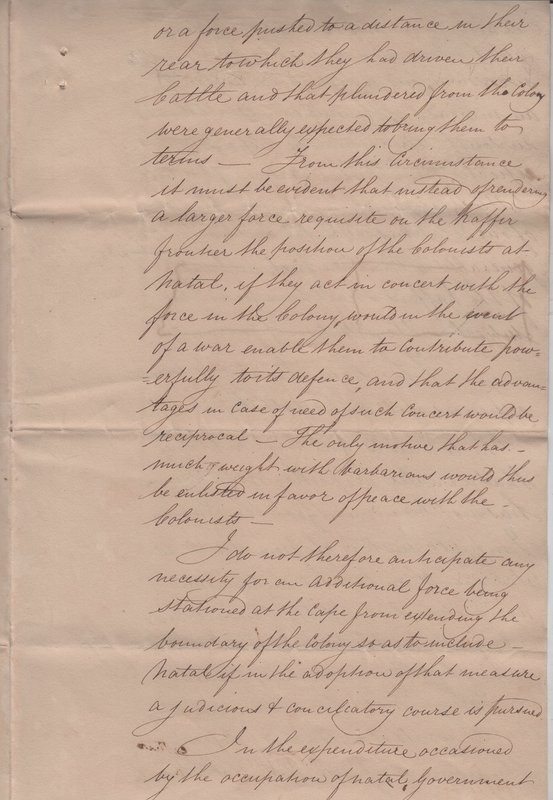 or a force pushed to a distance in their
rear, to which they had driven their
Cattle and that plundered from the Colony
were generally expected to bring them to
terms — From this Circumstance
it must be evident that instead of rendering
a larger force requisite on the Kaffir
frontier the position of the Colonists at
Natal, if they act in concert with the
force in the Colony, would in the event
of a war enable them to Contribute pow-
-erfully to its defence, and that the advan-
-tages in Case of need of such Concert would be
reciprocal — The only motive that has
much weight with barbarians would thus
be enlisted in favor of peace with the
Colonists —
I do not therefore anticipate any
necessity for an additional force being
stationed at the Cape from extending the
boundary of the Colony so as to include
Natal if in the adoption of that measure
a judicious & conciliatory course is pursued
In the expenditure occasioned
by the occupation of Natal, Government